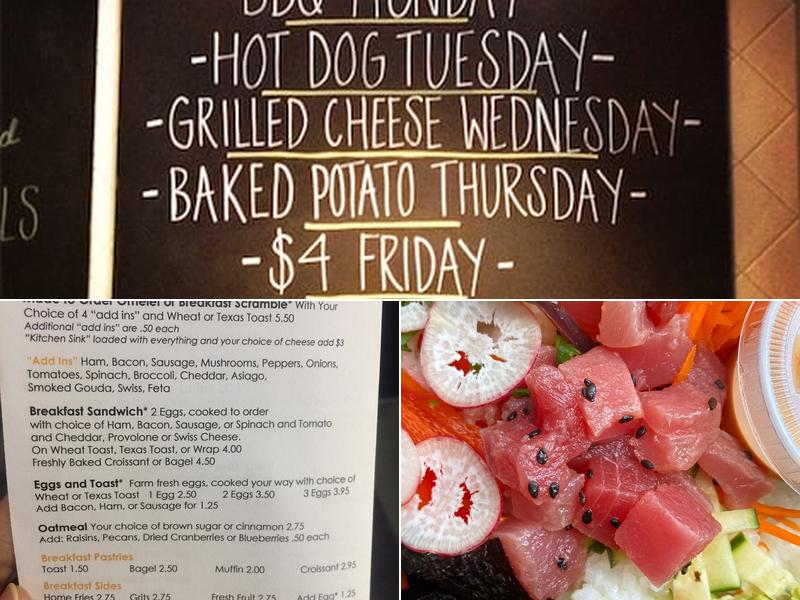 BBQ MONDAY
-HOT DOG TUESDAY-
-GRILLED CHEESE WEDNESDAY-
-BAKED POTATO THURSDAY-
-$4 FRIDAY-
LS
Made to Order Omelet or Breakfast Scramble* With Your
Choice of 4 "add ins" and Wheat or Texas Toast 5.50
Additional "add ins" are .50 each
"Kitchen Sink" loaded with everything and your choice of cheese add $3
"Add Ins" Ham, Bacon, Sausage, Mushrooms, Peppers, Onions,
Tomatoes, Spinach, Broccoli, Cheddar, Asiago,
Smoked Gouda, Swiss, Feta
Breakfast Sandwich* 2 Eggs, cooked to order
with choice of Ham, Bacon, Sausage, or Spinach and Tomato
and Cheddar, Provolone or Swiss Cheese.
On Wheat Toast, Texas Toast, or Wrap 4.00
Freshly Baked Croissant or Bagel 4.50
Eggs and Toast* Farm fresh eggs, cooked your way with choice of
Wheat or Texas Toast 1 Egg 2.50 2 Eggs 3.50 3 Eggs 3.95
Add Bacon, Ham, or Sausage for 1.25
Oatmeal Your choice of brown sugar or cinnamon 2.75
Add: Raisins, Pecans, Dried Cranberries or Blueberries .50 each
Breakfast Pastries
Toast 1.50 Bagel 2.50 Muffin 2.00 Croissant 2.95
Breakfast Sides
Home Fries 2.75 Grits 2.75 Fresh Fruit 2.75 Add Egg* 1.25